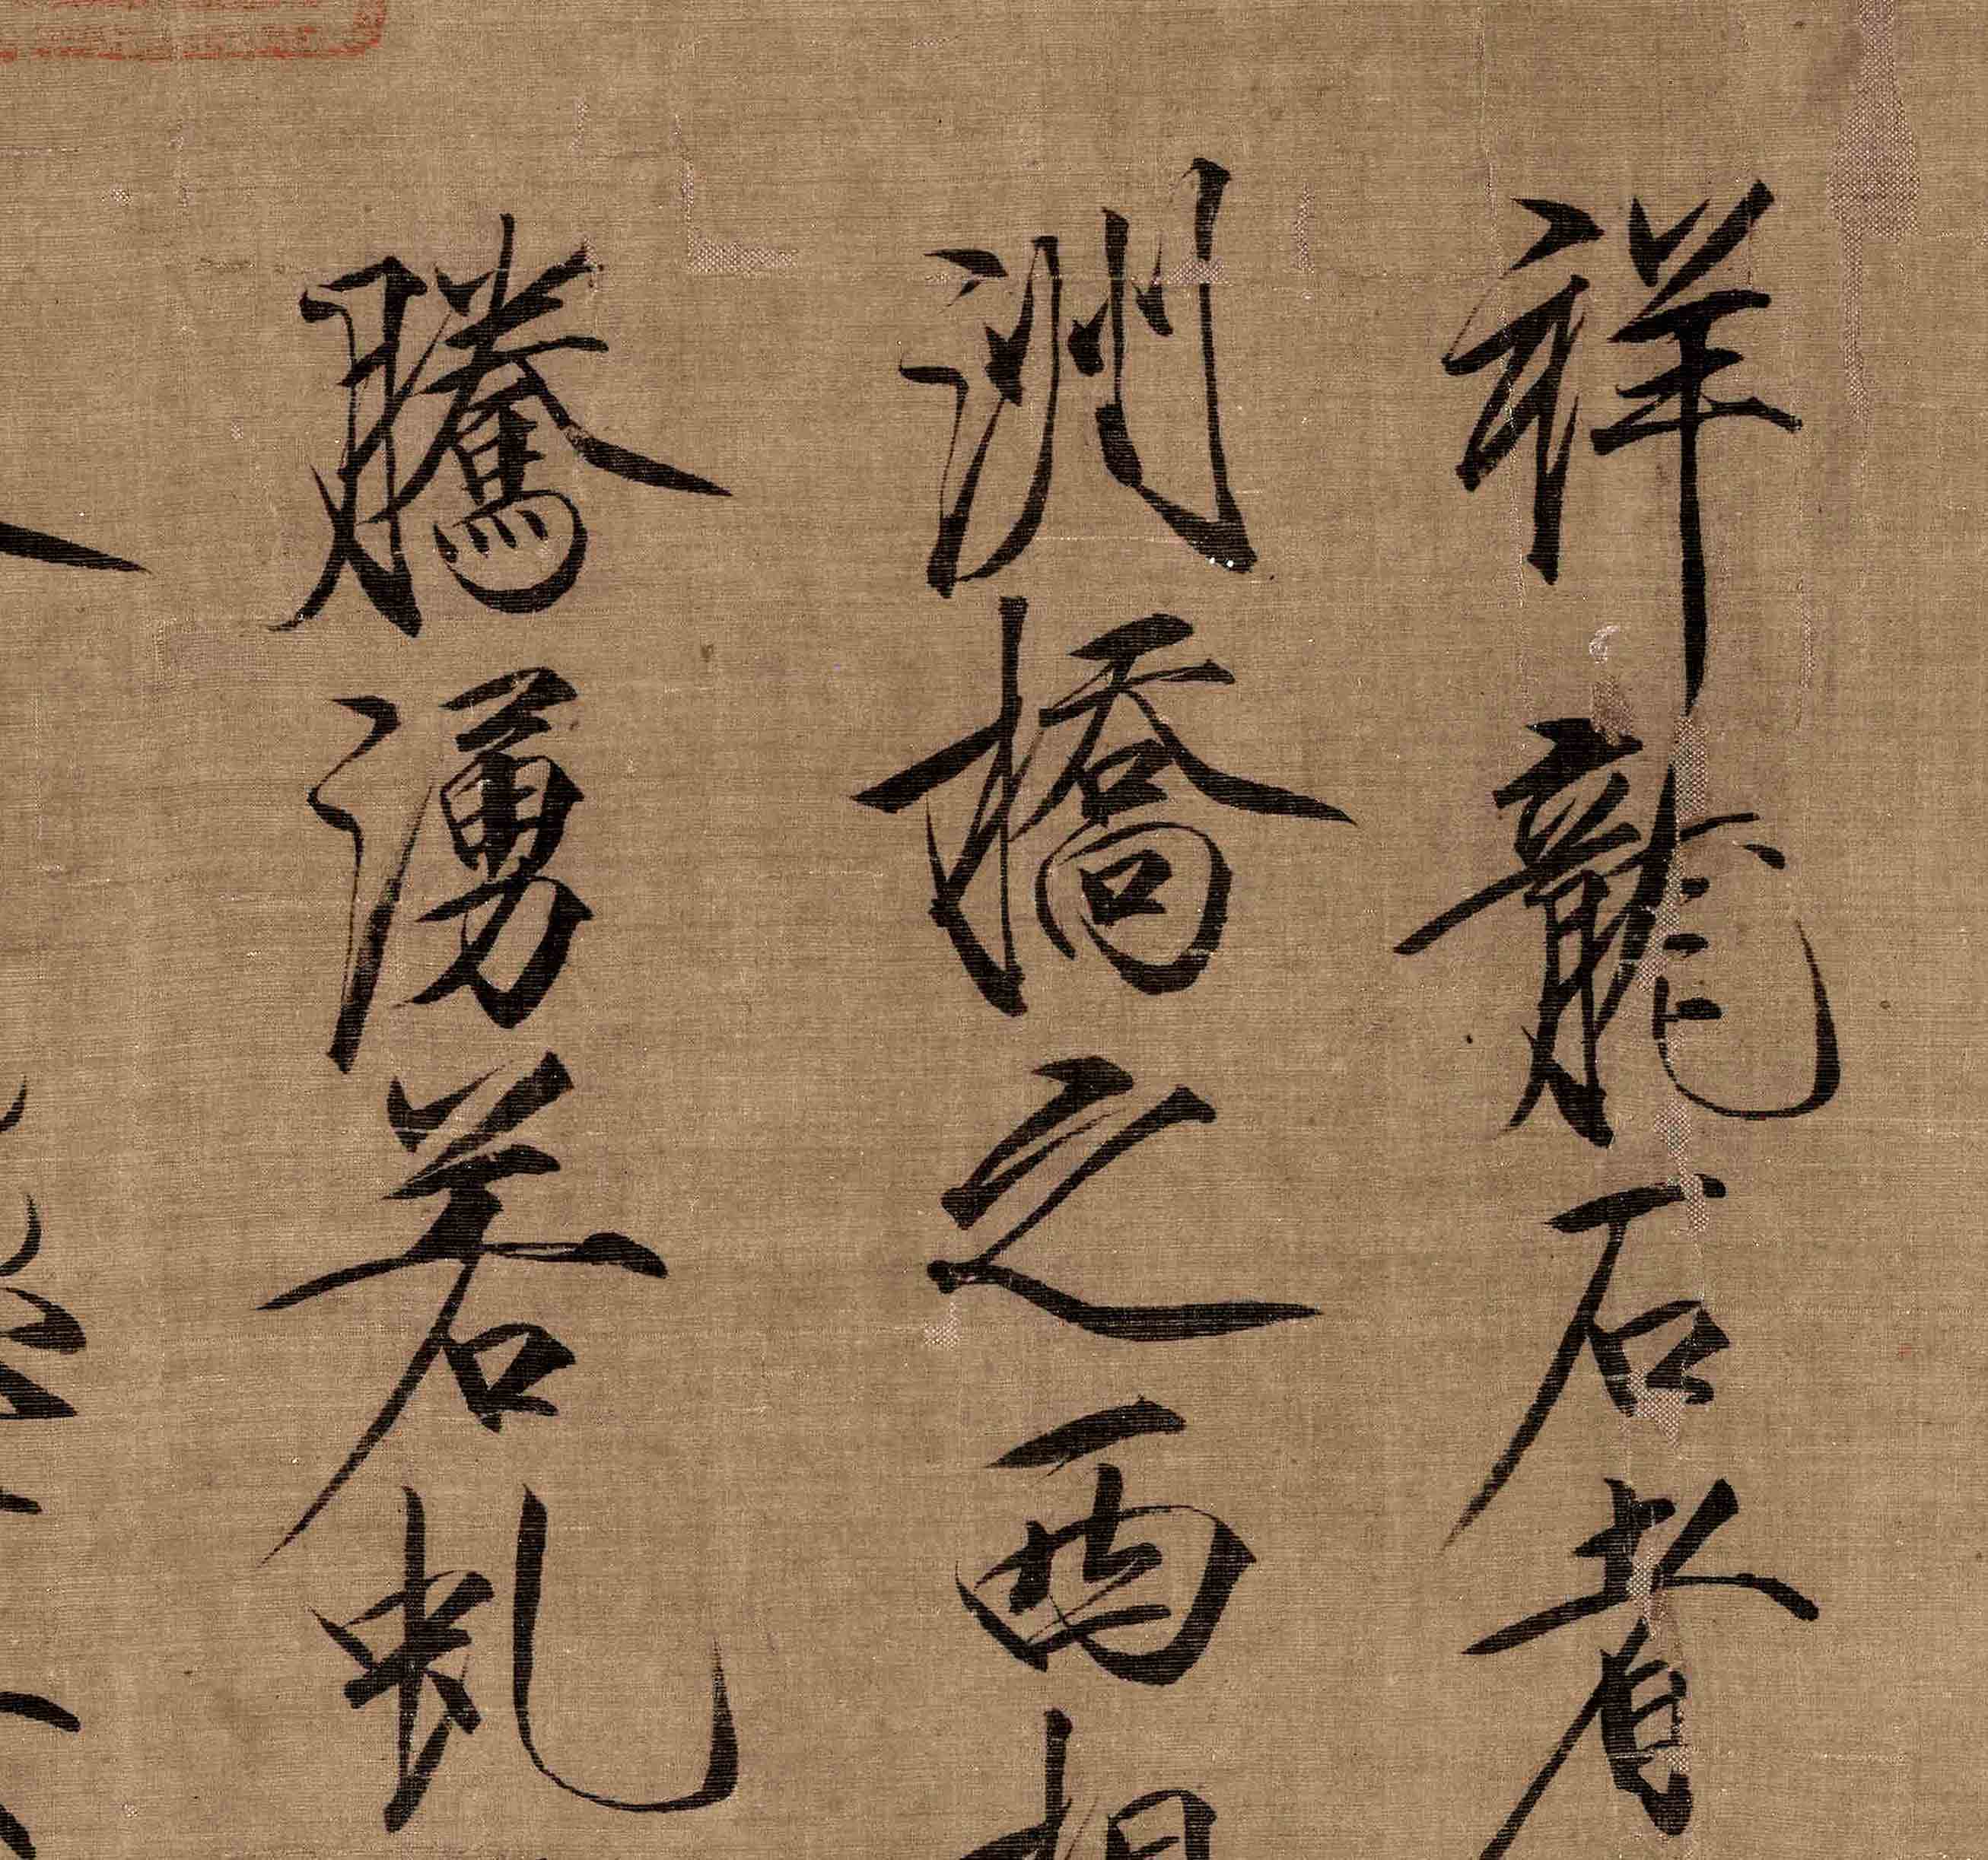 祥龍石者
洲橋之西相
騰湧若虬